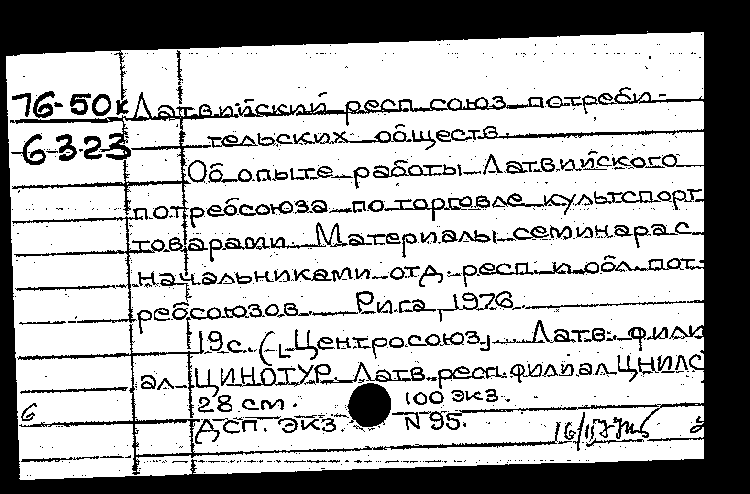 76-50к Латвийский респ. союз потреби-
6323 тельских обществ.
Об опыте работы Латвийского
потребсоюза по торговле культспорт
товарами. Материалы семинара с
начальниками отд. респ. и обл. пот-
ребсоюзов. Рига, 1976.
19с. ([Центросоюз]. Латв. фили
ал ЦИНОТУР. Латв. респ. филиал ЦНИЛС
28 см. 100 экз.
6 ДСП. экз. N 95.